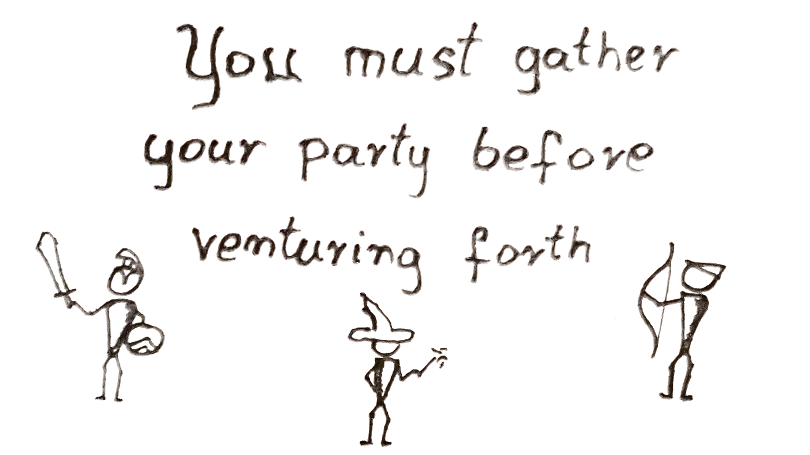 You must gather
your party before
venturing forth